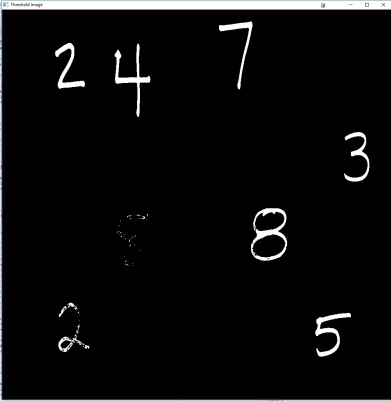 Threshold Image
2 4 7
3
8
2 5